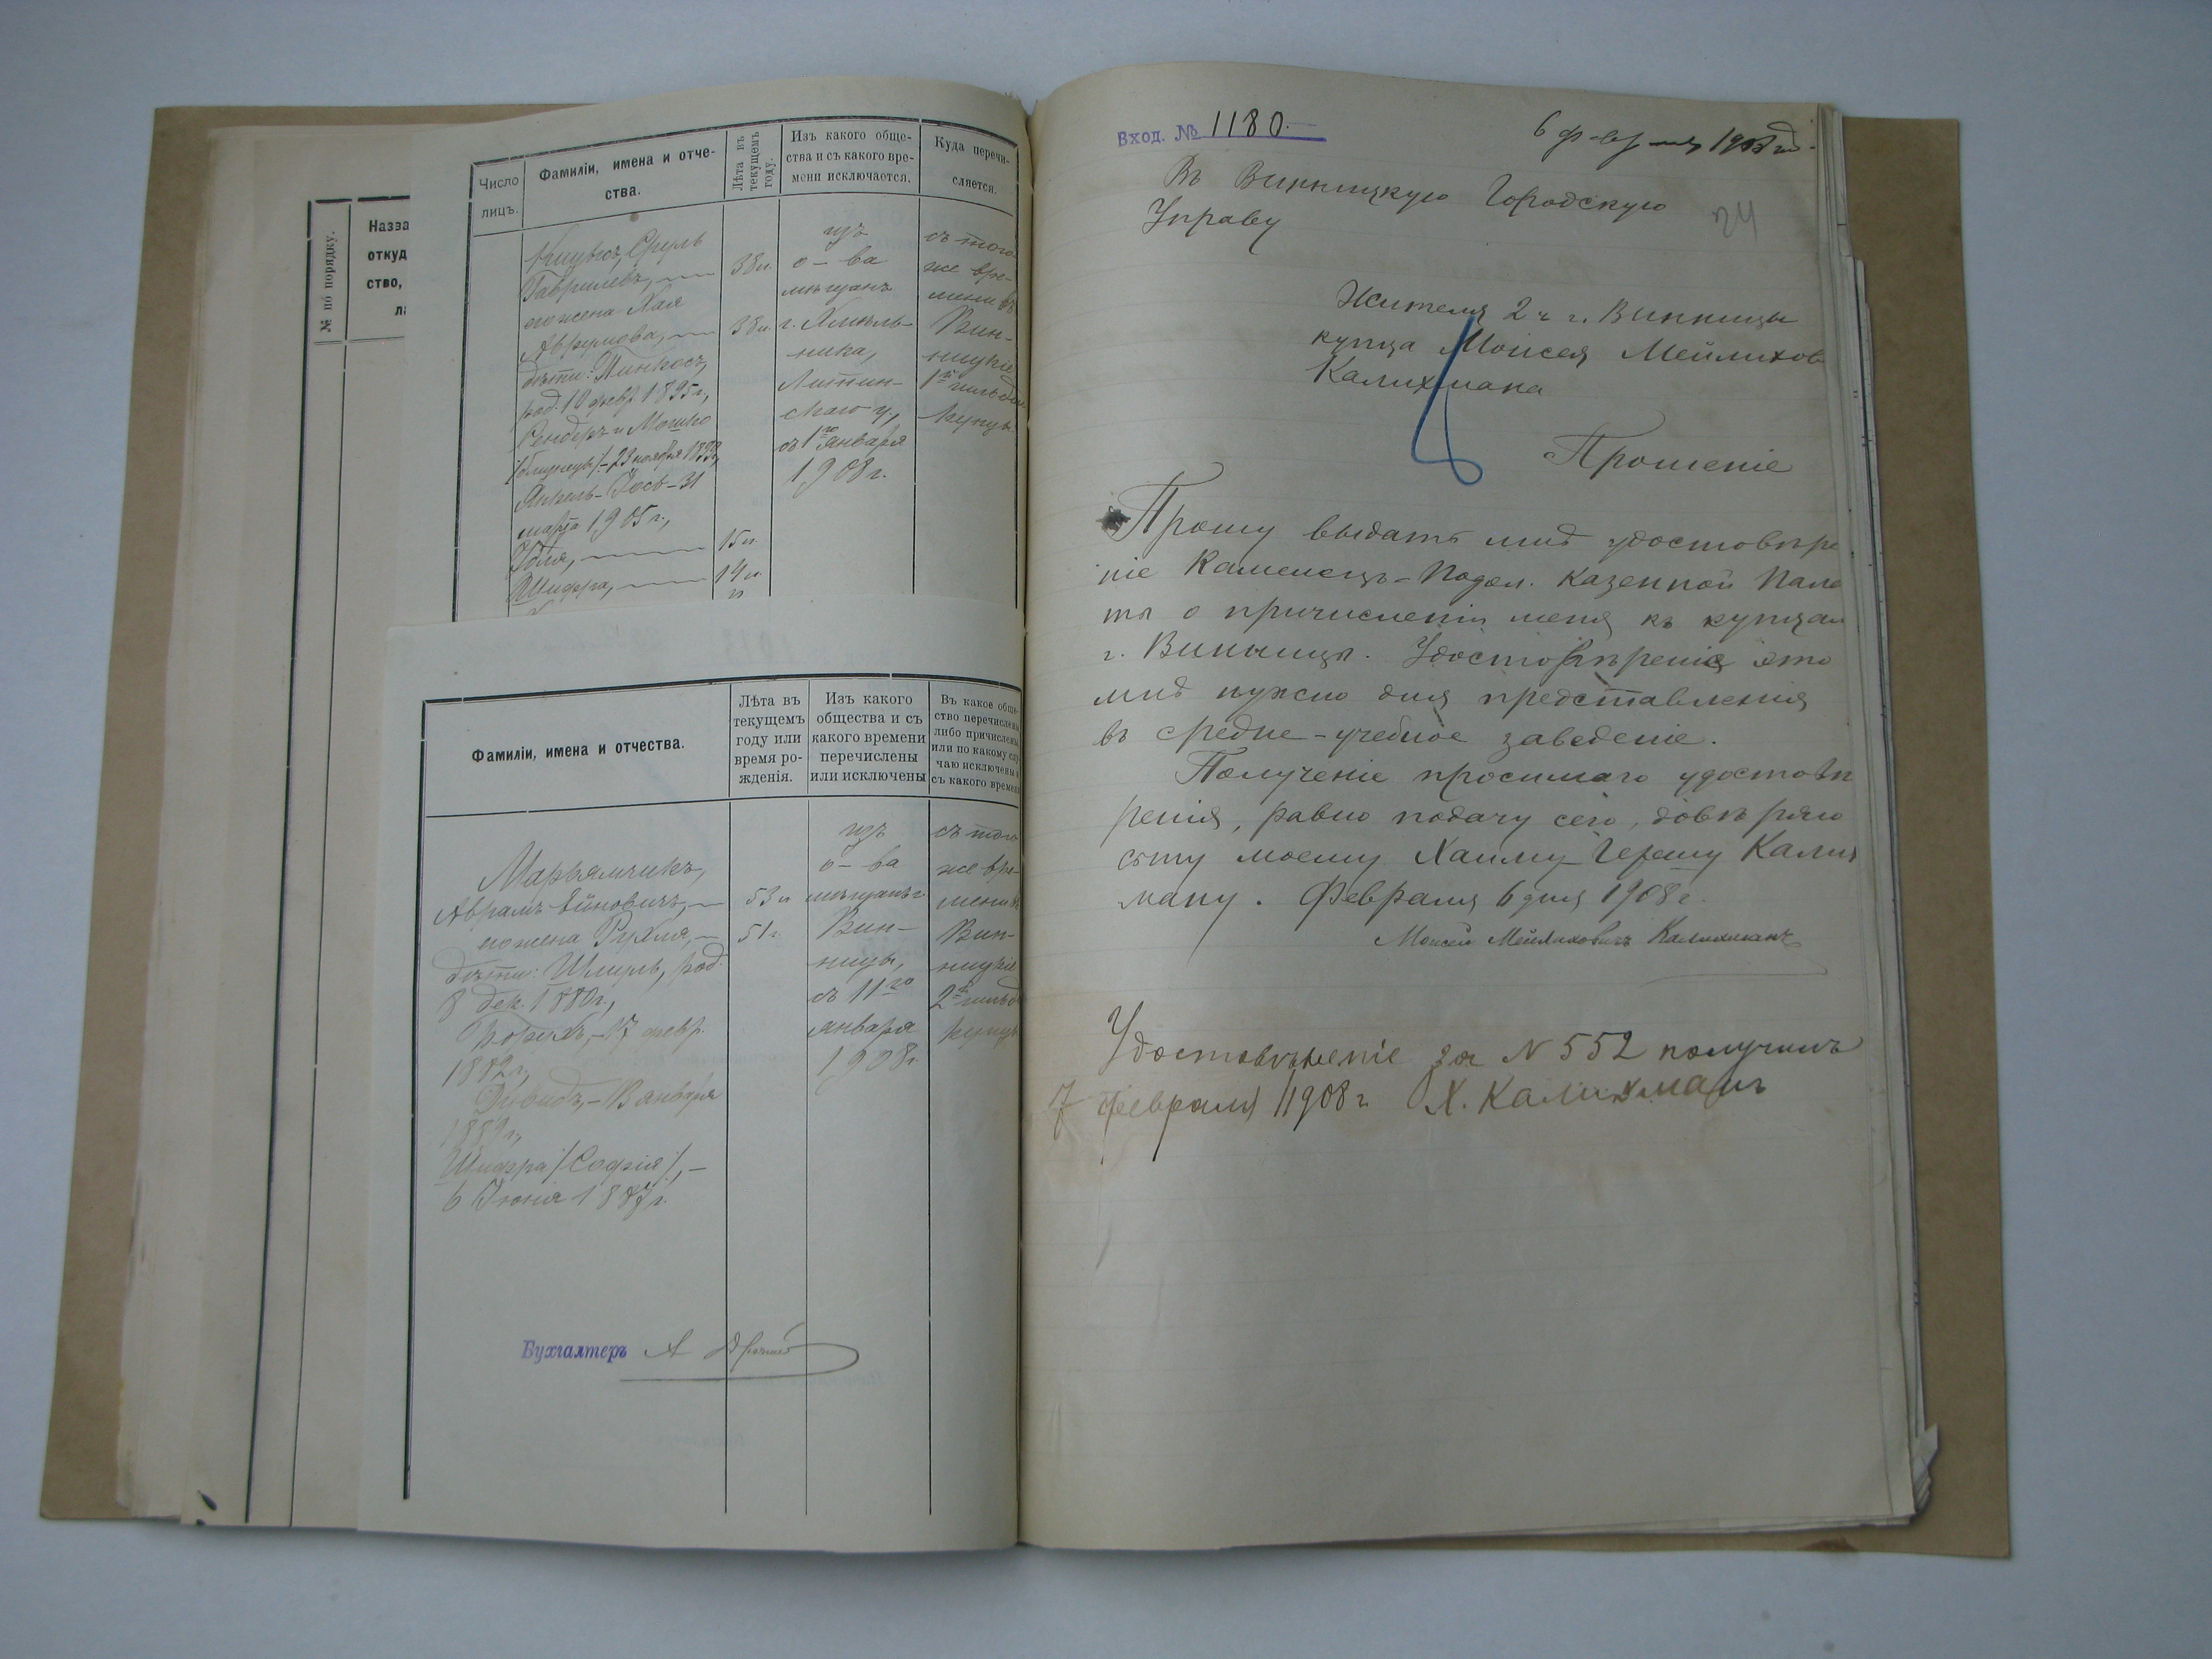 № по порядку.
Назва
откуд
ство,
ла
Число лицъ.
Фамиліи, имена и отчества.
Лѣта въ текущемъ году.
Изъ какого общества и съ какого времени исключается.
Куда перечисляется.
Сруль
Гавриловъ, 38 л.
его жена Хая
Аврумова, 38 л.
дѣти: Пинхосъ,
род. 10 февр. 1895 г.,
Сендеръ и Мошко
/близнецы/ – 23 ноября
Янкель-Іось – 31
марта 1905 г.,
15 л.
Шифра, 14 л.
изъ
о-ва
мѣщанъ
г. Хмѣль-
ника,
Литин-
скаго у.,
съ 1го января
1908 г.
съ того
же вре-
мени въ
Вин-
ницкіе
1й гильд
купцы
Фамиліи, имена и отчества.
Лѣта въ текущемъ году или время рожденія.
Изъ какого общества и съ какого времени перечислены или исключены
Въ какое обще-
ство перечислены
либо причислены
или по какому слу-
чаю исключены и
съ какого времени
Марьямчикъ,
Аврамъ Ейновичъ, 53 л
его жена Рухля, 51 г.
дѣти: Шмуль, род.
8 дек. 1880 г.,
17 февр.
1882 г.,
Давидъ, – 13 января
Шифра /Софія/, –
6 Іюня 1887 г.
изъ
о-ва
мѣщанъ г.
Вин-
ницы,
съ 11го
января
1908 г
съ того
же вре-
мени въ
Вин-
ницкіе
2й гильд
купцы
Бухгалтеръ А
Вход. № 1180.
6 февраля 1908 год.
24
Въ Винницкую Городскую
Управу
Жителя 2 ч г. Винницы
купца Моисея Мейлихов
Калихмана
Прошеніе
Прошу выдать мнѣ удостовѣре
ніе Каменецъ-Подол. Казенной Пала
ты о причисленіи меня къ купцам
г. Винницы. Удостовѣреніе это
мнѣ нужно для представленія
въ средне-учебное заведеніе.
Полученіе просимаго удостовѣ
ренія, равно подачу сего, довѣряю
сыну моему Хаиму-Гершу Калих
ману. Февраля 6 дня 1908 г.
Моисей Мейлиховичъ Калихманъ
Удостовѣреніе за N 552 получилъ
7 февраля 1908 г Х. Калихманъ